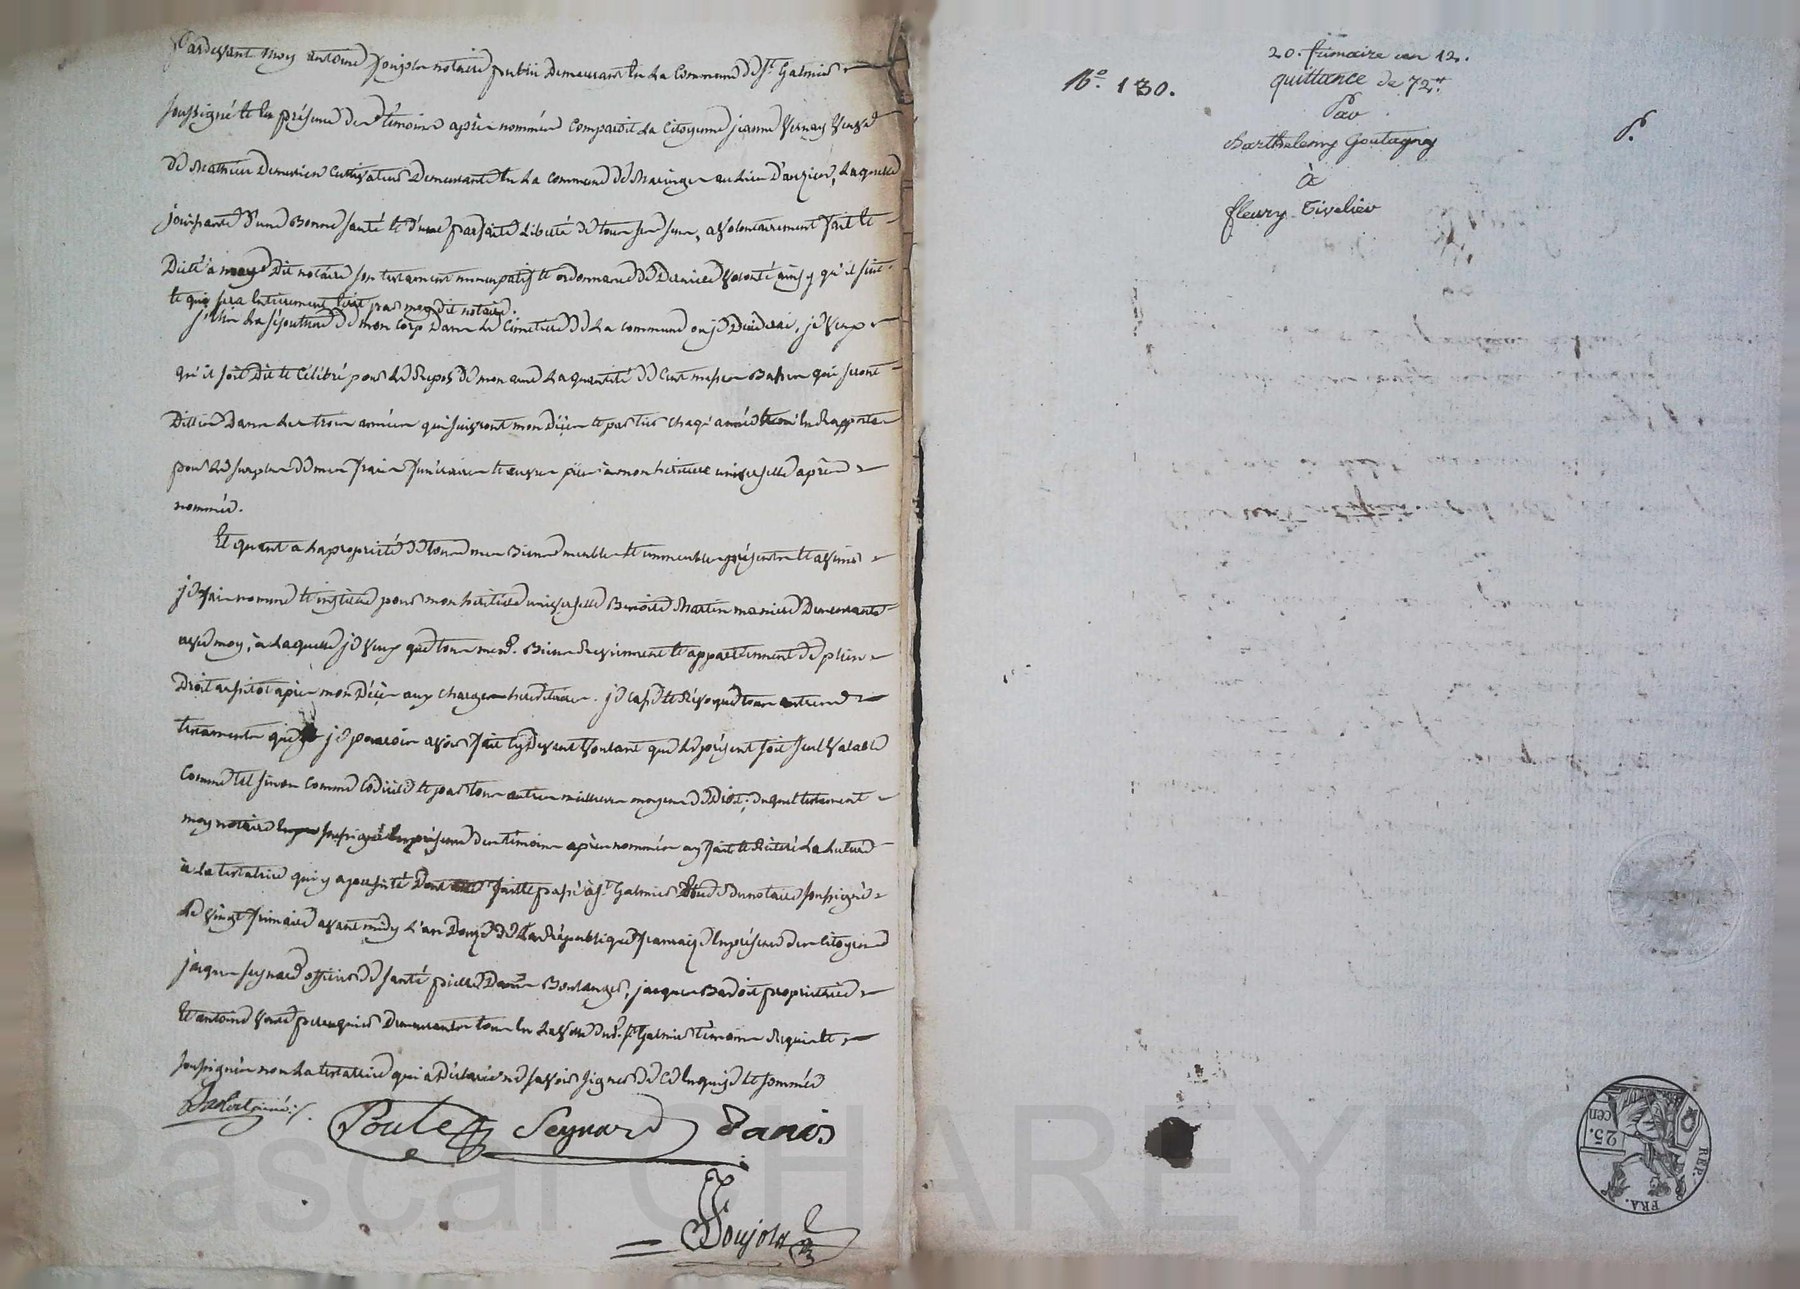 Pardevant moy antoine Poujola notaire public Demeurant En La Commune de St. Galmier
Soussigné Et En présence des témoins après nommés Comparoit La Citoyenne jeanne Vernay Veuve
de Mathieu Demurier Cultivateur Demeurante En La Commune de Maringes au Lieu D'auzieu, Laquelle
jouissante d'une Bonne santé Et d'une parfaite Liberté de tous ses sens, a volontairement fait Et
Dicté a moy Dit notaire son testament nuncupatif Et ordonnance de Derniere volonté ainsy qu'il suit
Et qui sera Entierement Ecrit par moy dit notaire.
La sépulture de mon Corp Dans Le Cimetiere de La commune ou je Deciderai, je Veux
qu'il soit Dit Et Célébré pour Le Repos de mon ame La quantité de Cent messes Basses qui seront
Dittes Dans Les trois années qui suivront mon Décès Et par tier chaq' année En Rapporte
pour Le surplus de mes frais funéraires Et œuvres pies à mon heritiere universelle après
nommée.
Et quant a La propriété de tous mes Biens meubles Et immeubles présents Et avenir
je fais nomme Et institue pour mon heritiere universelle Benoite Martin ma niece Demeurante
avec moy, a Laquelle je Veux que tous mesd. Biens Reviennent Et appartiennent de plein
Droit aussitot après mon Décès aux charges hereditaires. je casse Et Révoque tous autres
testaments que je pourrois avoir fait cy Devant Voulant que Le présent soit seul Valable
Comme tel sinon Comme Codicille Et par tous autres meilleurs moyens de Droit; duquel testament
moy notaire soussigné En présence des témoins après nommés ay fait Et Réiteré La Lecture
à La testatrice qui y a persisté Dont acte faitte passé à St. Galmier Etude du notaire soussigné
Le vingt frimaire avant midy L'an Douze de La République française En présence des Citoyens
jacques seynard officier de santé pierre Danis Boulanger, jacques Badoit propriétaire
Et antoine perruquier Demeurants tous En La Ville dud. St. Galmier témoins Requis Et
soussignés non La testatrice qui a Déclaré ne savoir signer de ce Enquise Et sommée
Seynard Danis
Poujola
20. frimaire an 12.
No. 130.
quittance de 72tt.
Par
Barthelemy Goutagny
P.
à
fleury Tivelier
REP. FRA.
25.
cen
Pascal CHAREYRON